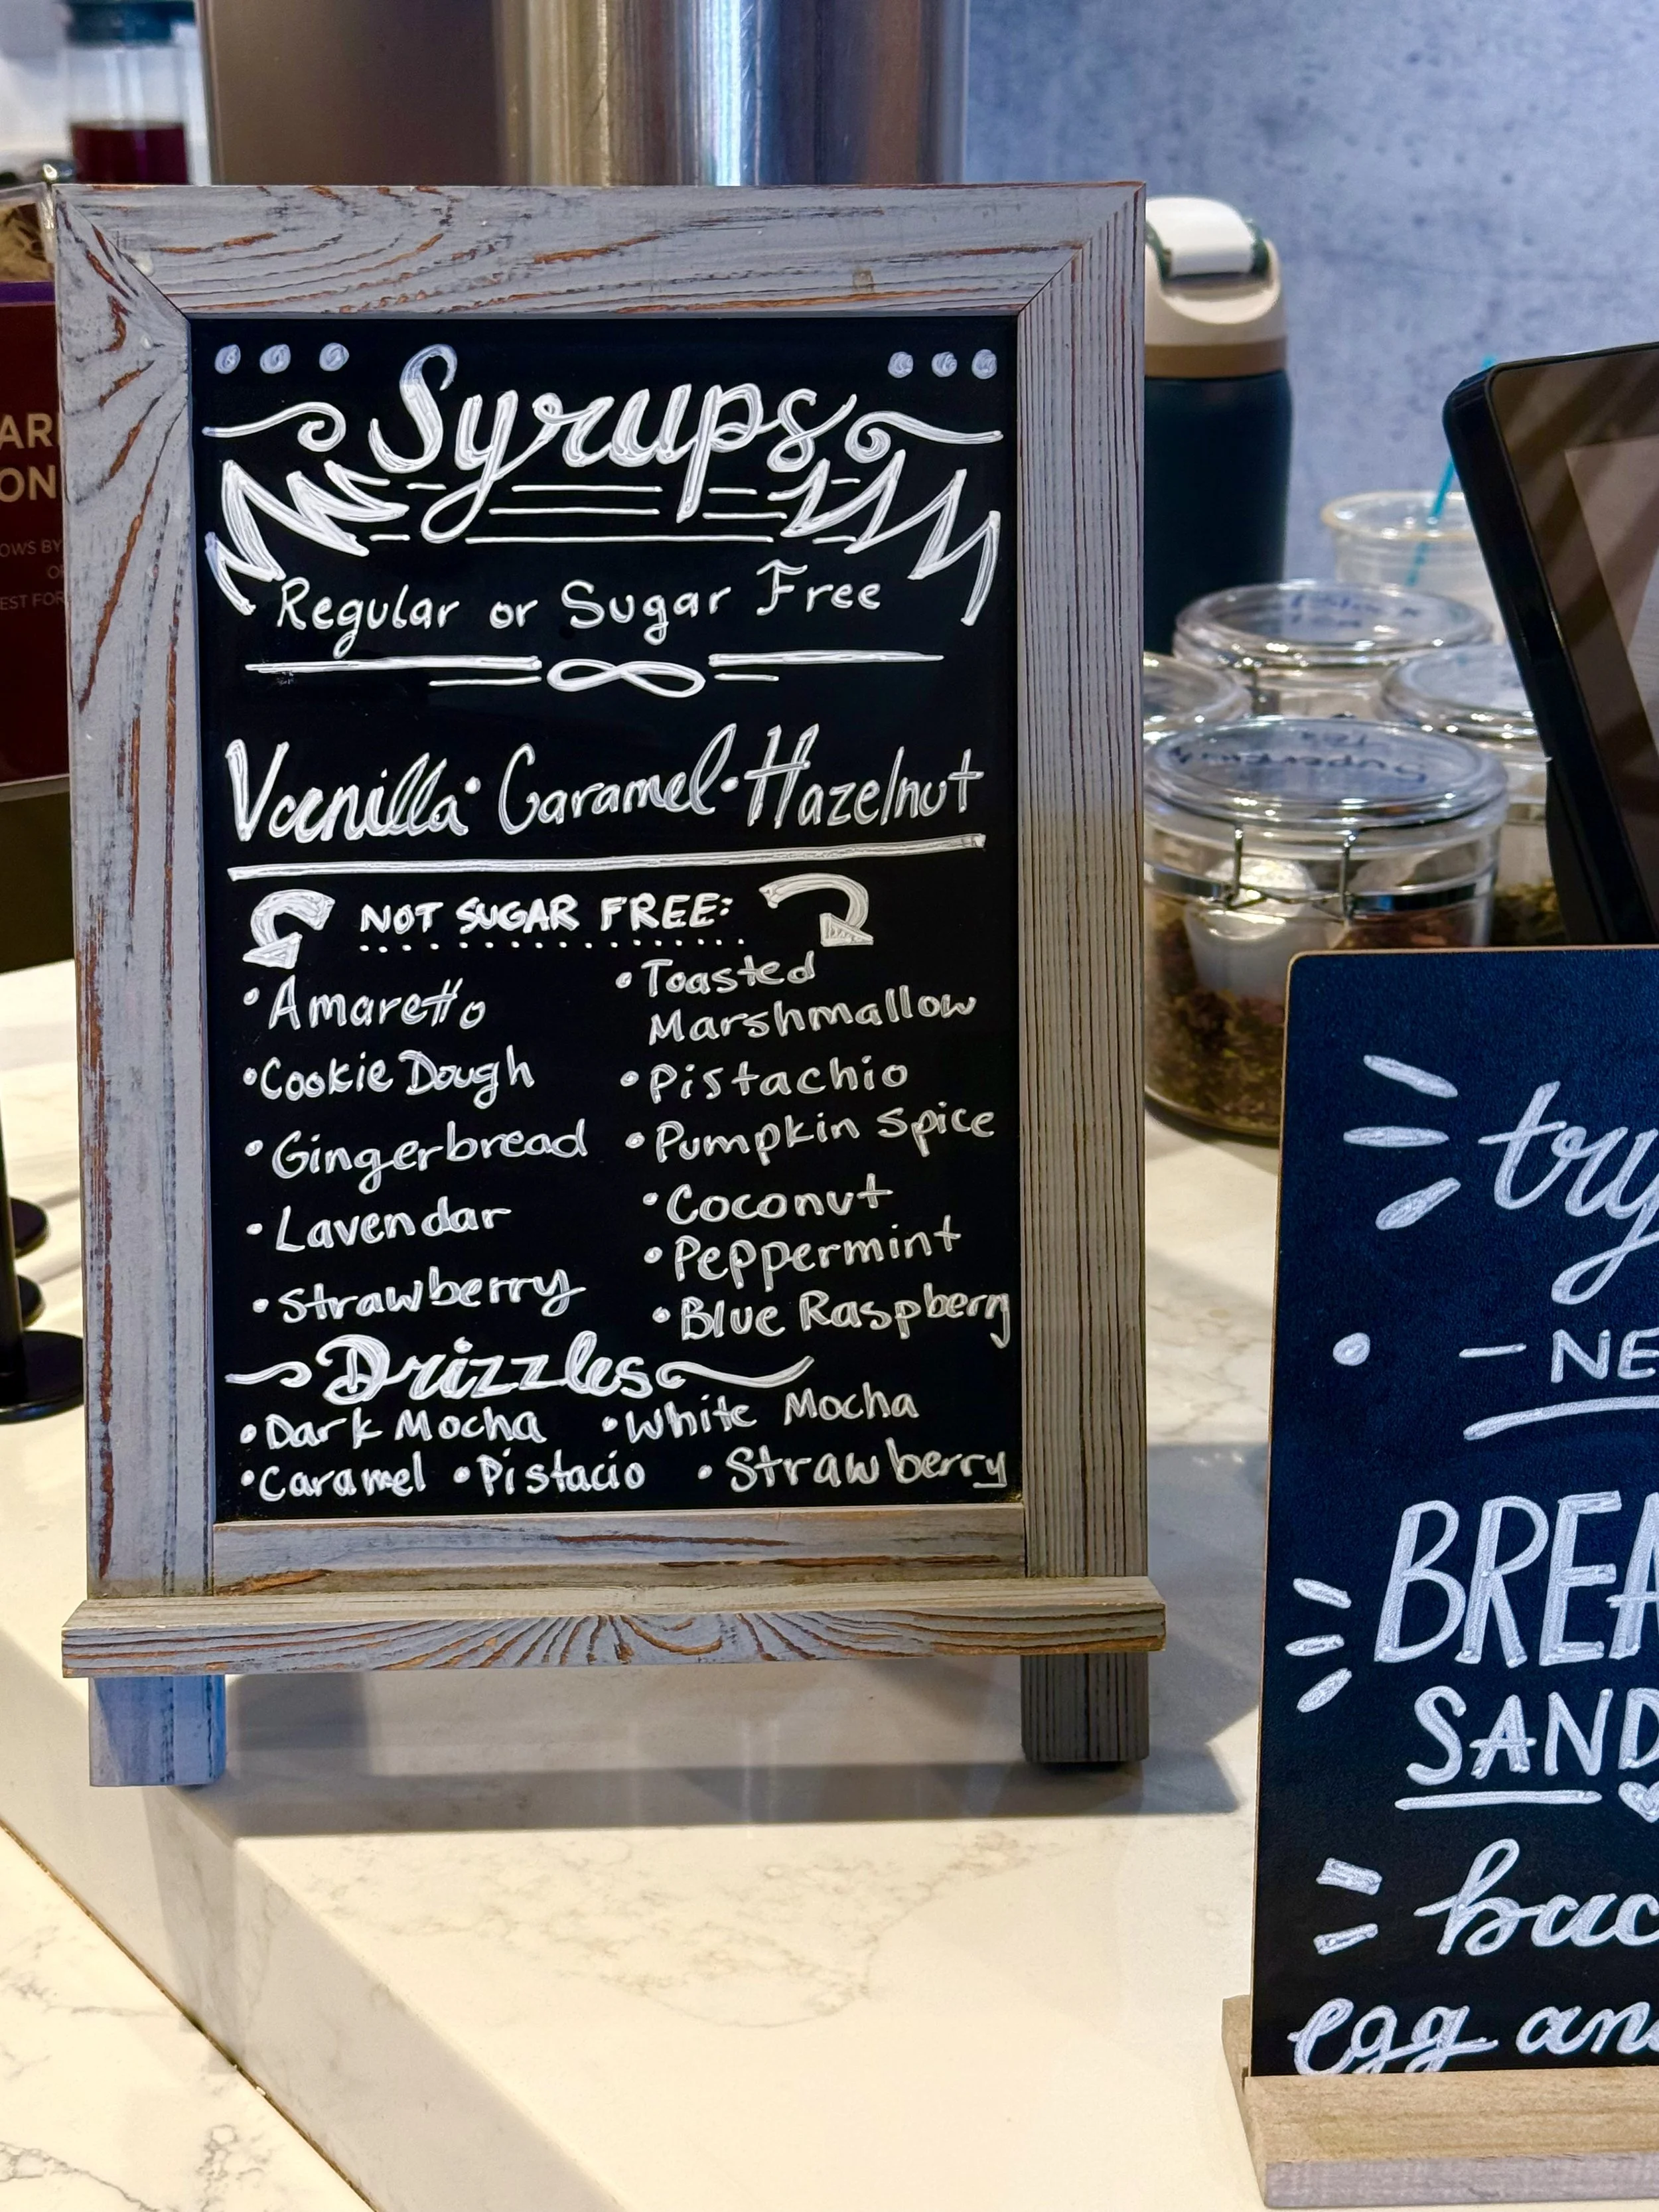 Syrups
Regular or Sugar Free
Vanilla • Caramel • Hazelnut
NOT SUGAR FREE:
• Amaretto
• Cookie Dough
• Gingerbread
• Lavendar
• Strawberry
• Toasted
Marshmallow
• Pistachio
• Pumpkin Spice
• Coconut
• Peppermint
• Blue Raspberry
Drizzles
• Dark Mocha • White Mocha
• Caramel • Pistacio • Strawberry
try
- NE
BREA
SAND
bac
egg an
AR
ON
OWS BY
EST FOR